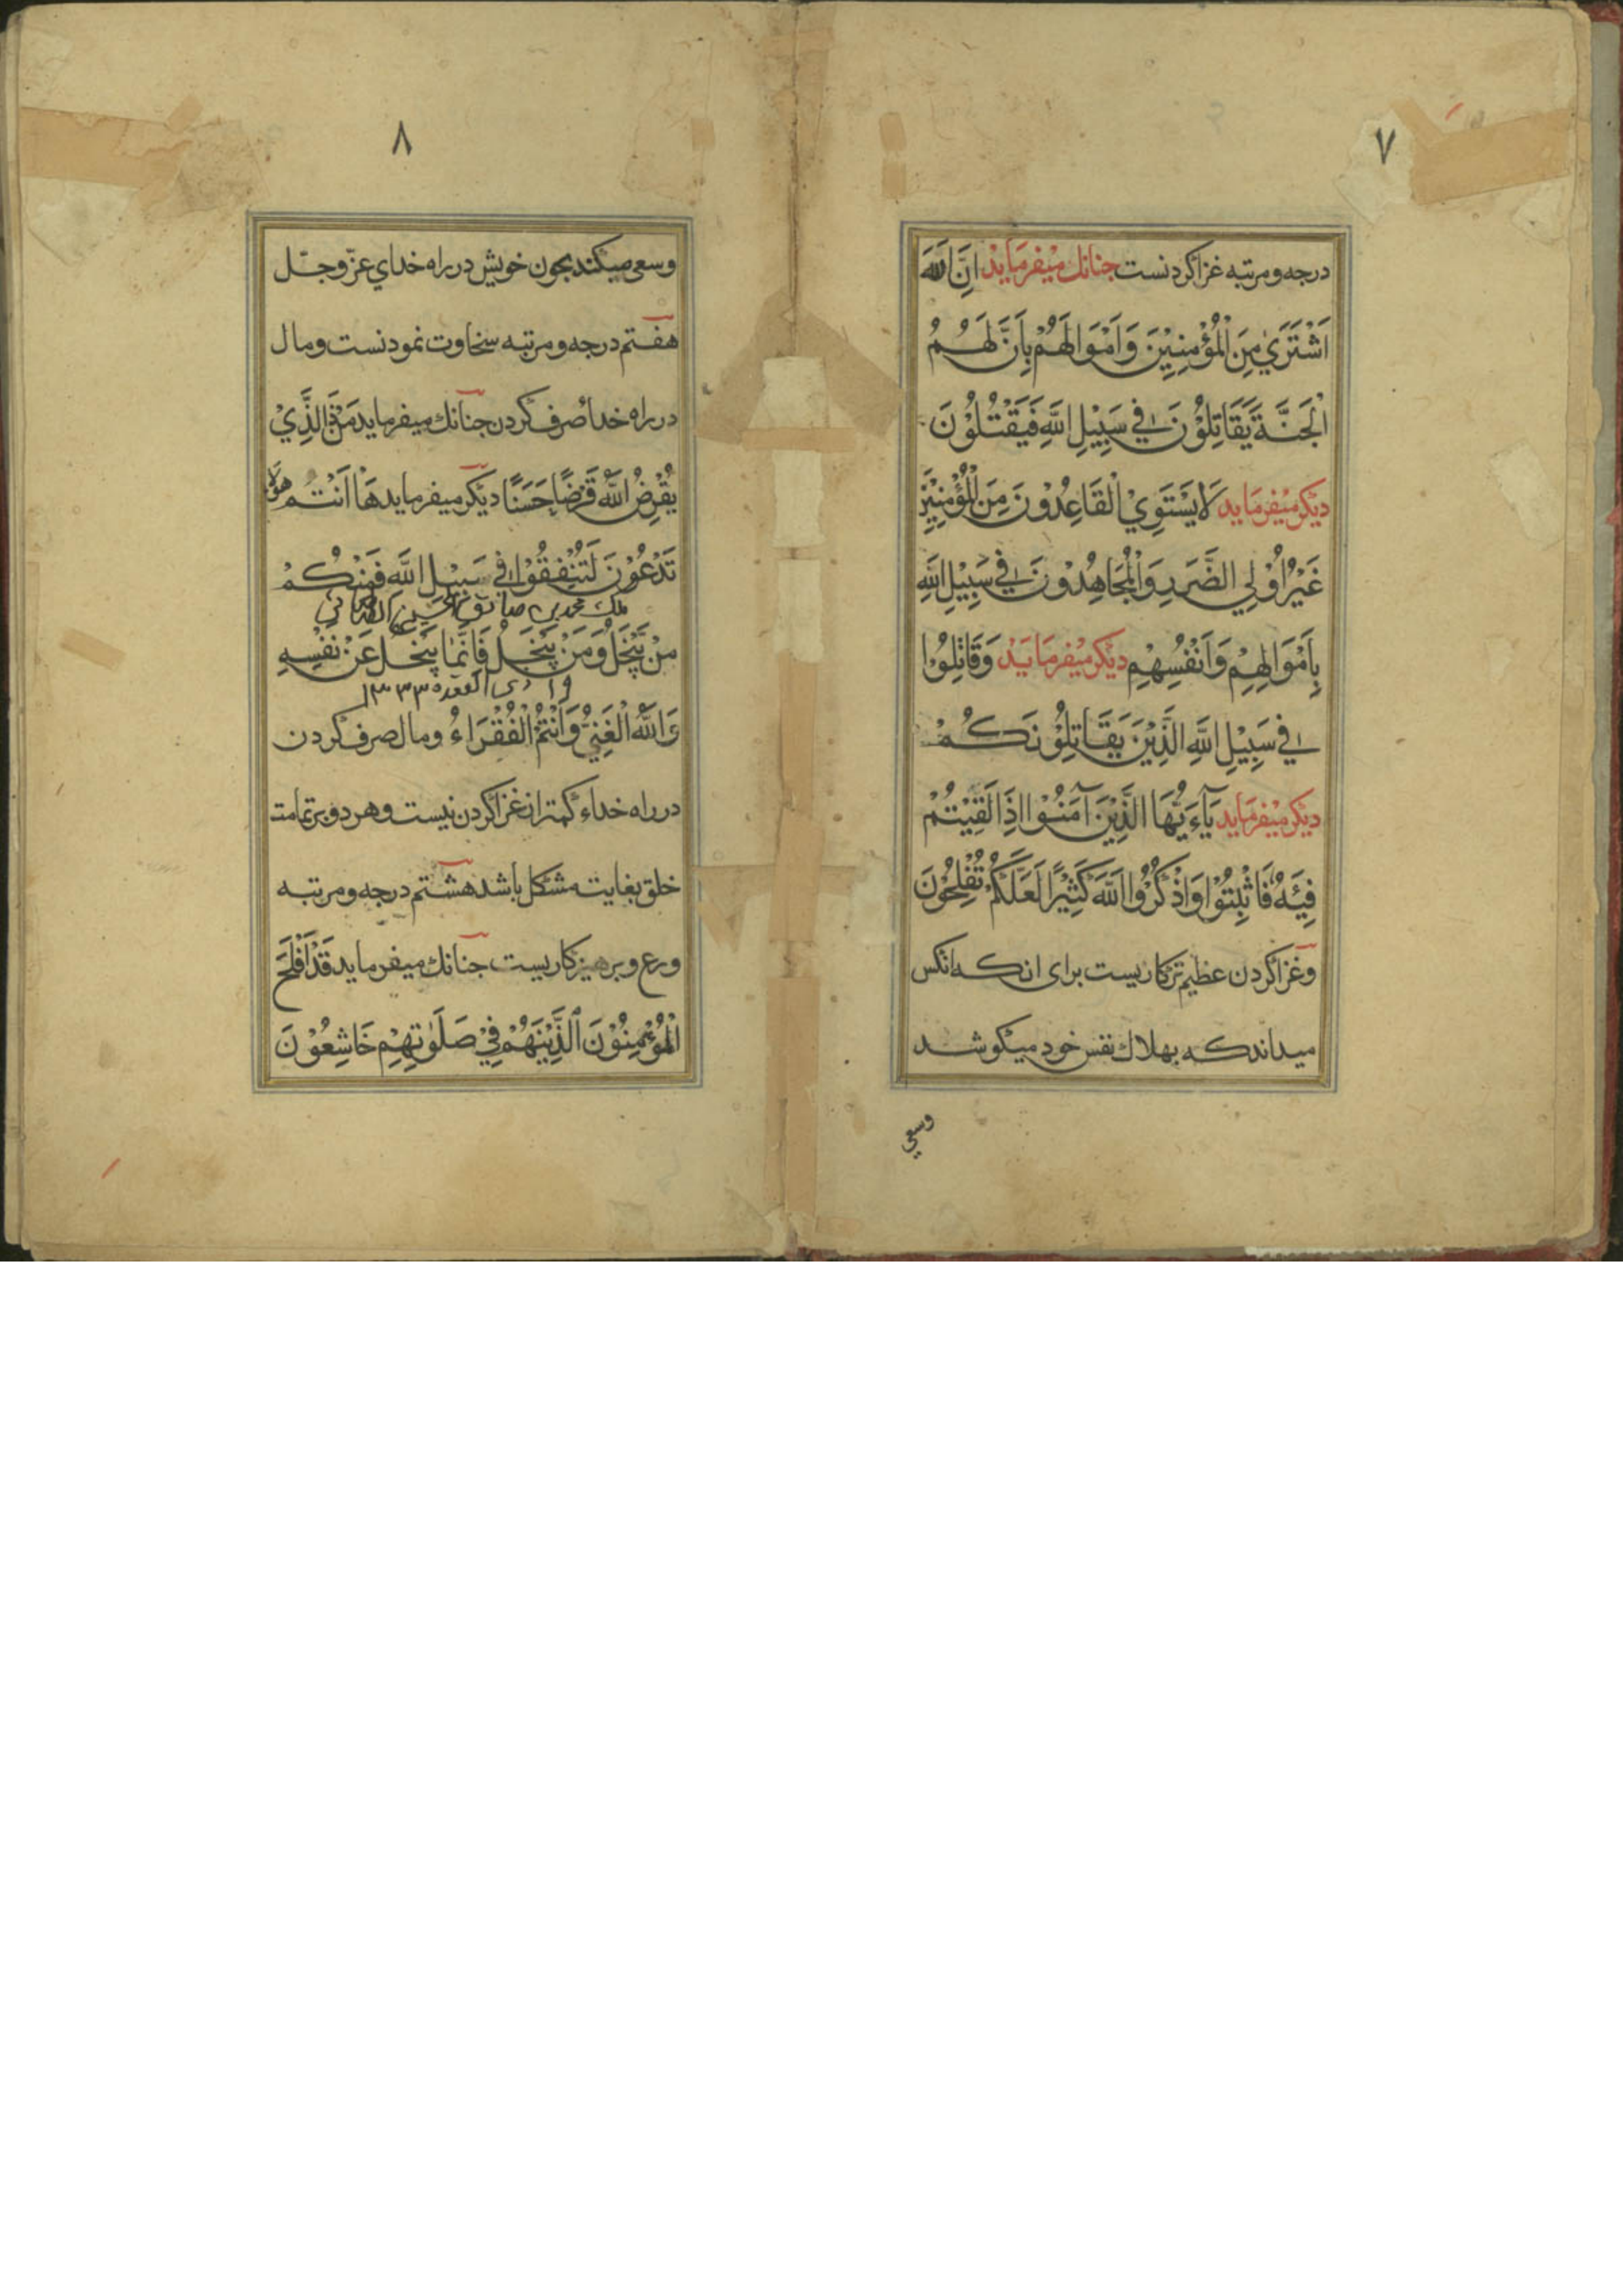 ٧
درجه ومرتبه غزا كردنست جنانك ميفرمايد اِنَّ اللهَ
اَشْتَرَيٰ مِنَ الْمُؤْمِنِيْنَ وَاَمْوَالَهُمْ بِاَنَّ لَهُمُ
الْجَنَّةَ يُقَاتِلُوْنَ فِي سَبِيْلِ اللّهِ فَيَقْتُلُوْنَ
ديكر ميفرمايد لَا يَسْتَوِيْ الْقَاعِدُوْنَ مِنَ الْمُؤْمِنِيْنَ
غَيْرُ اُوْلِي الضَّرَرِ وَالْمُجَاهِدُوْنَ فِي سَبِيْلِ اللّهِ
بِاَمْوَالِهِمْ وَاَنْفُسِهِمْ ديكر ميفرمايد وَقَاتِلُوْا
فِي سَبِيْلِ اللّهِ الَّذِيْنَ يُقَاتِلُوْنَكُمْ
ديكر ميفرمايد يَآءَ يُّهَا الَّذِيْنَ آمَنُوْا اِذَا لَقِيْتُمْ
فِيَةً فَاثْبِتُوْا وَاذْكُرُوْا اللّهَ كَثِيْرًا لَعَلَّكُمْ تُفْلِحُوْنَ
وغزا كردن عظيم تركاريست براى انكه انكس
ميداند كه بهلاك نفس خود ميكوشد
وسعي
٨
وسعى ميكند بجون خويش در راه خداي عزّوجلّ
هفتم درجه ومرتبه سخاوت نمودنست ومال
در راه خداء صرف كردن جنانك ميفرمايد مَنْ ذَا الَّذِيْ
يُقْرِضُ اللّهَ قَرْضًا حَسَنًا ديكر ميفرمايد هَا اَنْتُمْ هؤلَاءِ
تَدْعُوْنَ لَتُنْفِقُوْا فِي سَبِيْلِ اللّهِ فَمِنْكُمْ
ملك محمد بن صادق
مَنْ يَّبْخَلُ وَمَنْ يَبْخَلْ فَاِنَّمَا يَبْخَلُ عَنْ نَفْسِهِ
ذى القعده ١٣٣٣
وَاللّهُ الْغَنِيُّ وَاَنْتُمْ الْفُقَرَاءُ ومال صرف كردن
در راه خداء كمتر از غزا كردن نيست وهر دو بر تمامت
خلق بغايت مشكل باشد هشتم درجه ومرتبه
ورع وبرهيزكاريست جنانك ميفرمايد قَدْ اَفْلَحَ
الْمُؤْمِنُوْنَ اَلَّذِيْنَ هُمْ فِيْ صَلٰوتِهِمْ خَاشِعُوْنَ